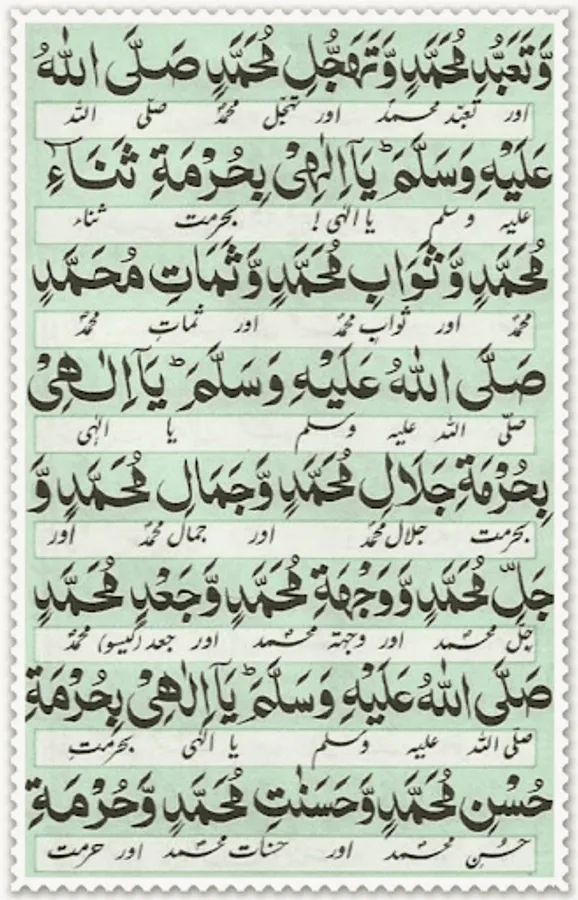 وَّتَعَبُّدِ مُحَمَّدٍ وَّتَهَجُّلِ مُحَمَّدٍ صَلَّى اللهُ
اور تعبّد محمدؐ اور تہجّل محمدؐ صلّی اللہ
عَلَيْهِ وَسَلَّمَ ؕ يَآ اِلٰهِىْ بِحُرْمَةِ ثَنَآءِ
علیہ وسلم یا الٰہی! بحرمت ثناء
مُحَمَّدٍ وَّثَوَابِ مُحَمَّدٍ وَّثَمَاتِ مُحَمَّدٍ
محمدؐ اور ثواب محمدؐ اور ثماتِ محمدؐ
صَلَّى اللهُ عَلَيْهِ وَسَلَّمَ ؕ يَآ اِلٰهِىْ
صلّی اللہ علیہ وسلم یا الٰہی
بِحُرْمَةِ جَلَالِ مُحَمَّدٍ وَّجَمَالِ مُحَمَّدٍ وَّ
بحرمت جلال محمدؐ اور جمال محمدؐ اور
جَلِّ مُحَمَّدٍ وَّوَجْهَةِ مُحَمَّدٍ وَّجَعْدِ مُحَمَّدٍ
جلّ محمدؐ اور وجہتہ محمدؐ اور جعد (گیسو) محمدؐ
صَلَّى اللهُ عَلَيْهِ وَسَلَّمَ ؕ يَآ اِلٰهِىْ بِحُرْمَةِ
صلّی اللہ علیہ وسلم یا الٰہی بحرمتِ
حُسْنِ مُحَمَّدٍ وَّحَسَنٰتِ مُحَمَّدٍ وَّحُرْمَةِ
حسُنِ محمدؐ اور حنات محمدؐ اور حرمت